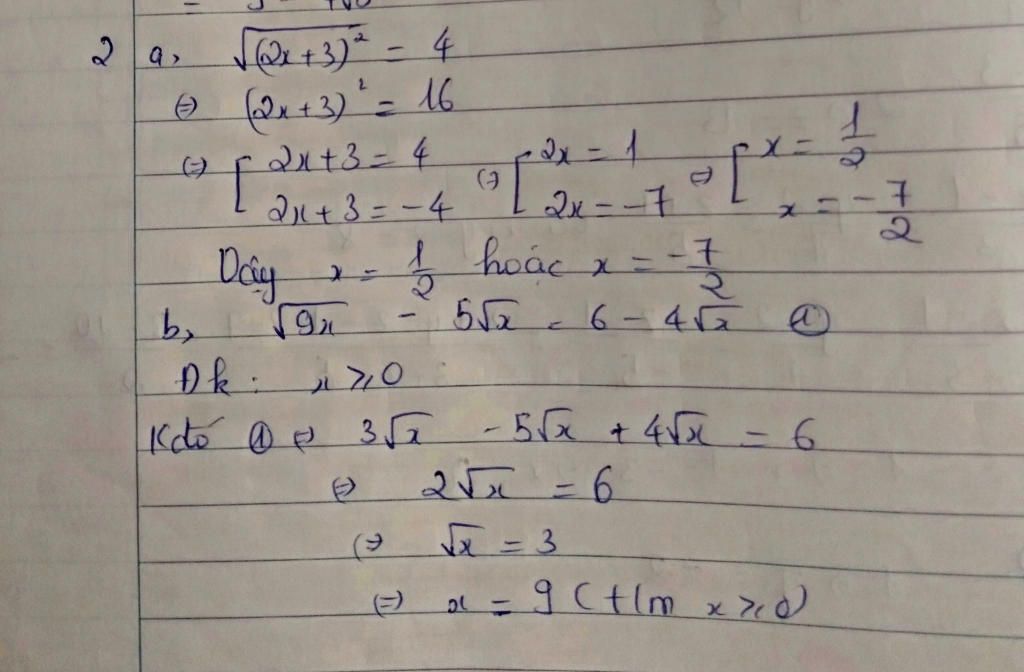 2 a, √(2x+3)² = 4
⇔ (2x+3)² = 16
⇔ [ 2x+3 = 4 ⇔ [ 2x = 1 ⇔ [ x = 1/2
2x+3 = -4 2x = -7 x = -7/2
Vậy x = 1/2 hoặc x = -7/2
b, √9x - 5√x = 6 - 4√x ①
Đk: x ≥ 0
Kđó ① ⇔ 3√x - 5√x + 4√x = 6
⇔ 2√x = 6
⇔ √x = 3
⇔ x = 9 (t/m x ≥ 0)